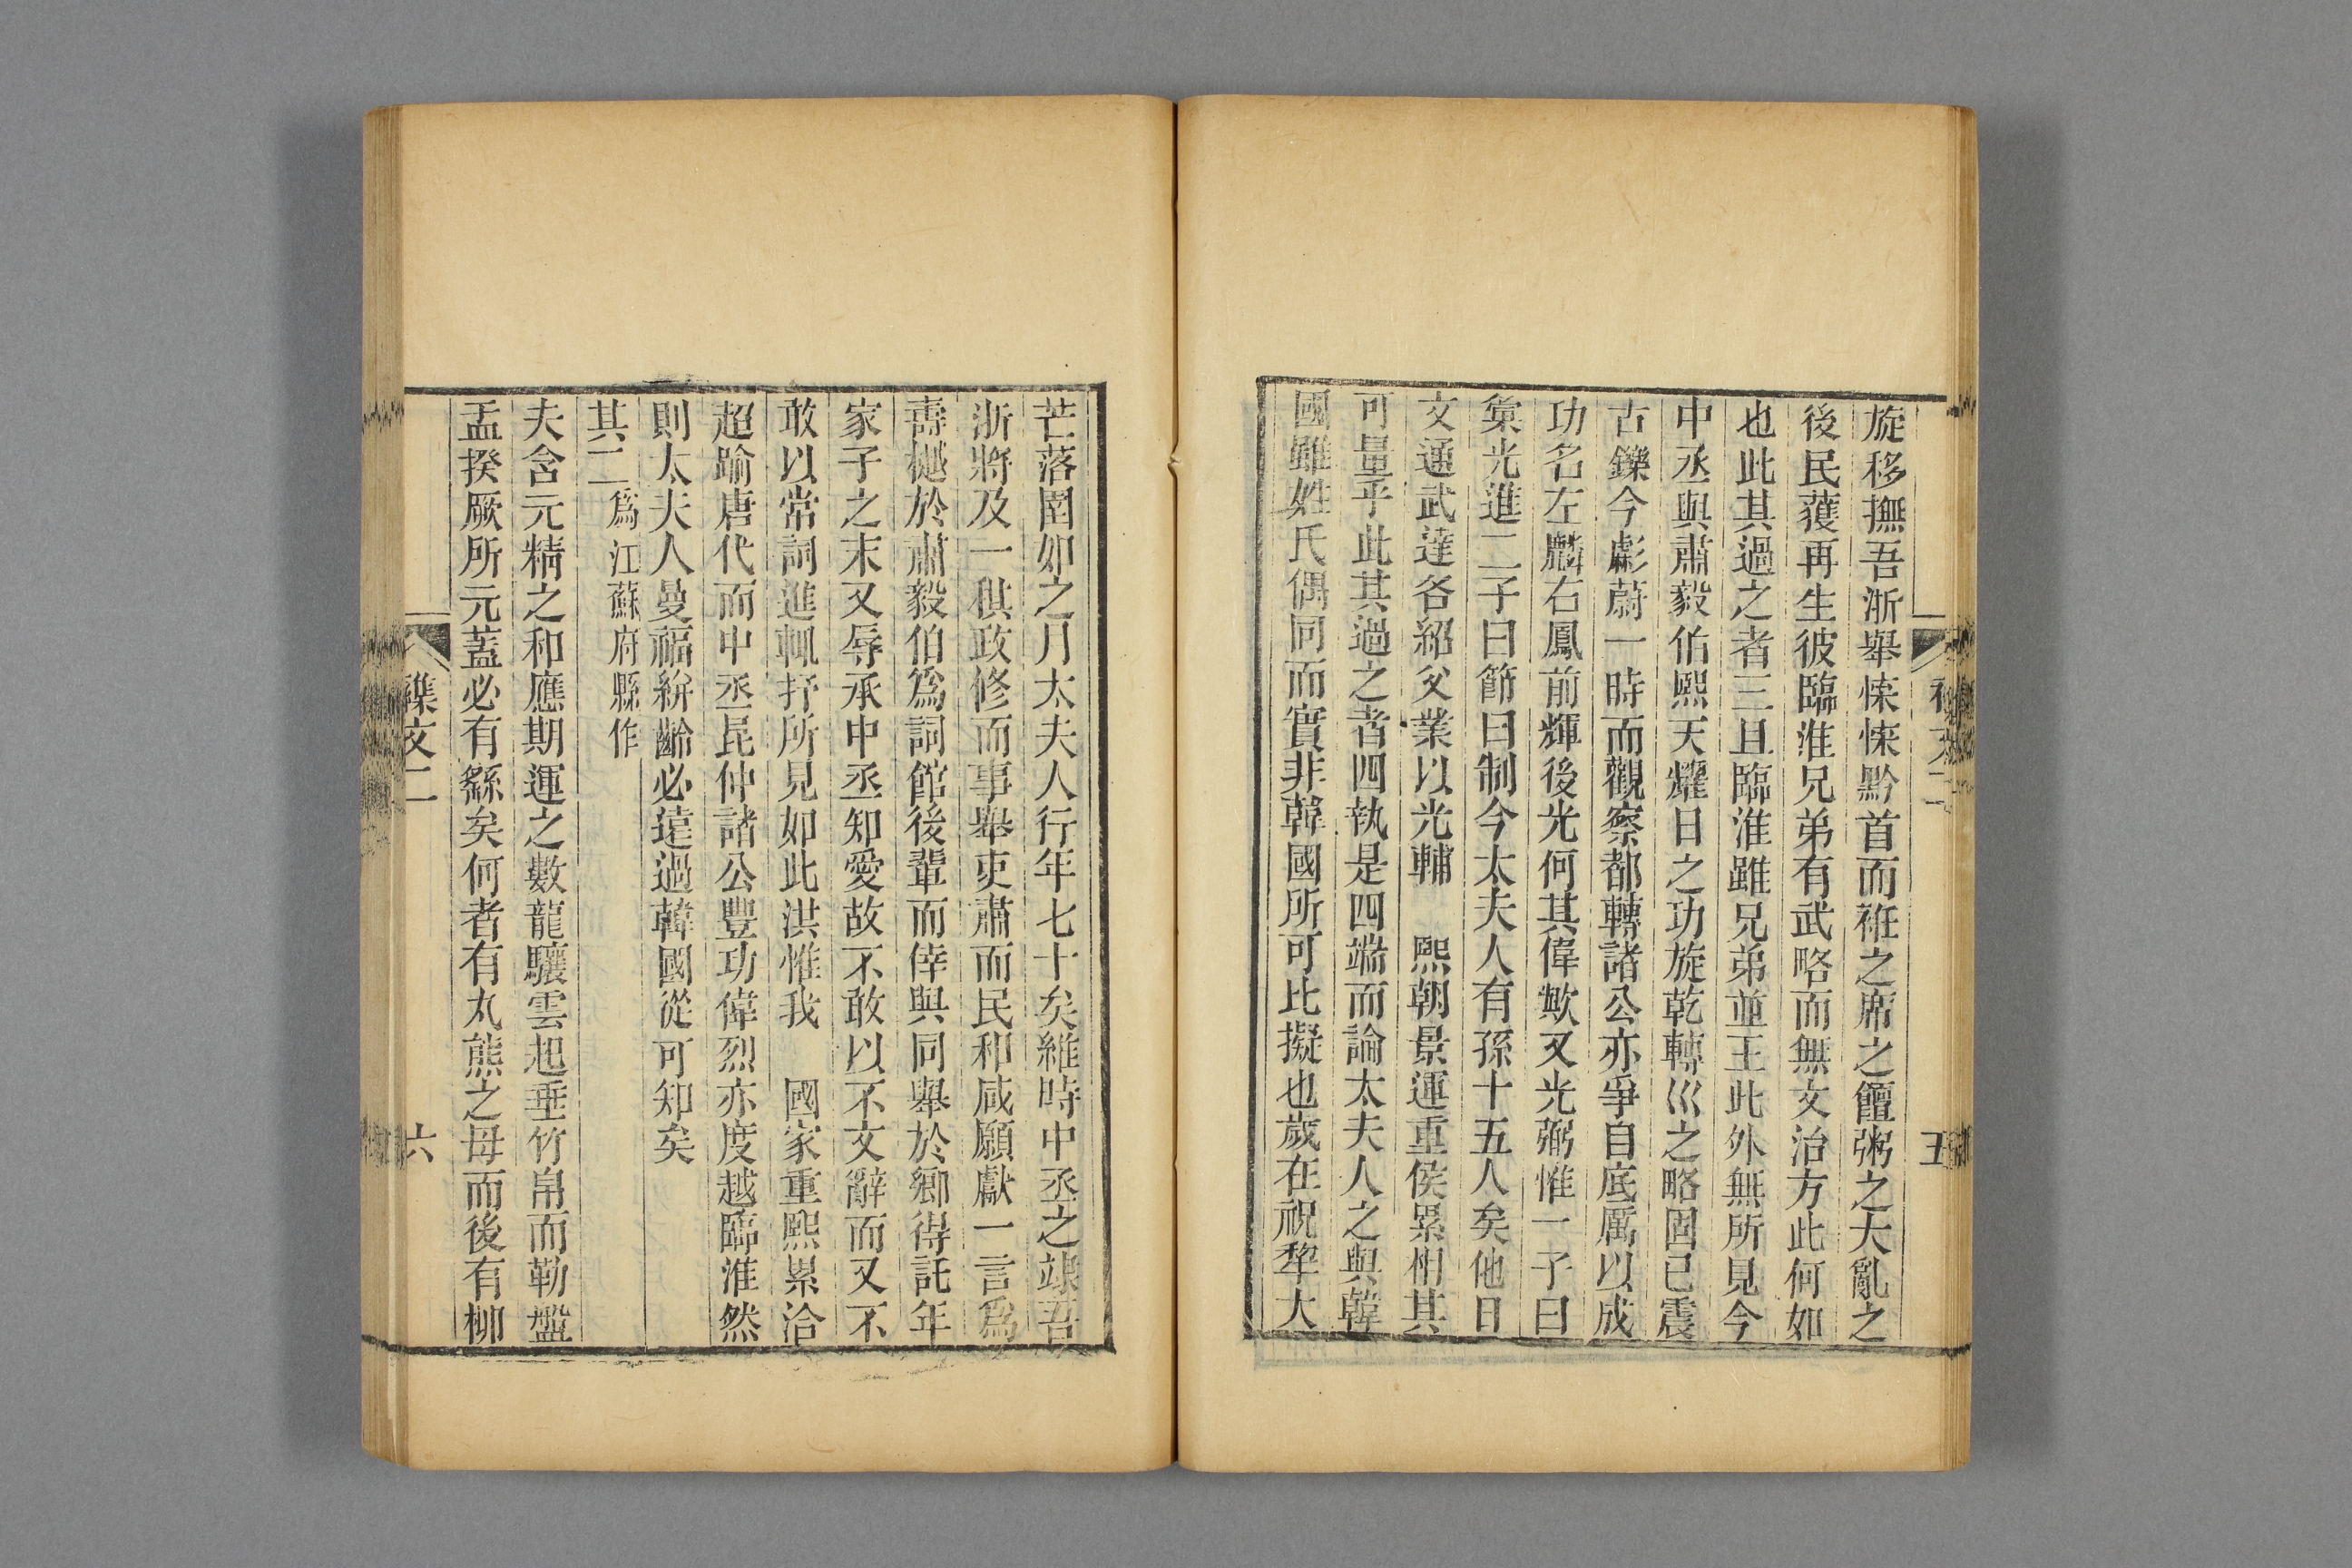 旋移撫吾浙舉悚悚黔首而袵之席之饘粥之大亂之
後民蒦再生彼臨淮兄弟有武略而無文治方此何如
也此其過之者三且臨淮雖兄弟並王此外無所見今
中丞與肅毅伯熙天耀日之功旋乾轉巛之略固已震
古鑠今彪蔚一時而觀察都轉諸公亦爭自底厲以成
功名左麟右鳳前輝後光何其偉歟又光弼惟一子曰
彙光進二子曰節曰制今太夫人有孫十五人矣他日
文通武達各紹父業以光輔 熙朝景運重侯累相其
可量乎此其過之者四執是四端而論太夫人之與韓
國雖姓氏偶同而實非韓國所可比擬也歲在祝犂大
五
芒落圉如之月太夫人行年七十矣維時中丞之涖吾
浙將及一稘政修而事舉吏肅而民和咸願獻一言爲
壽樾於肅毅伯爲詞館後輩而倖與同舉於鄉得託年
家子之末又辱承中丞知愛故不敢以不文辭而又不
敢以常詞進輒抒所見如此洪惟我 國家重熙累洽
超踰唐代而中丞昆仲諸公豐功偉烈亦度越臨淮然
則太夫人曼福絣齡必遠過韓國從可知矣
其二爲江蘇府縣作
夫含元精之和應期運之數龍驤雲起垂竹帛而勒盤
盂揆厥所元蓋必有繇矣何者有丸熊之母而後有柳
襍文二
六